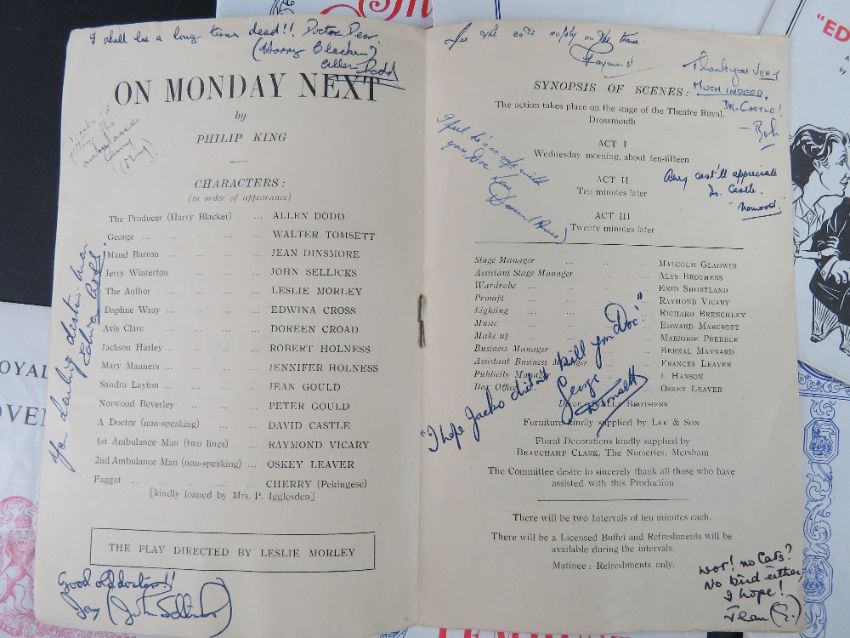 I shall be a long time dead!! Doctor Dear
(Harry Blacket)
Allen Dodd
ON MONDAY NEXT
by
PHILIP KING
CHARACTERS:
(in order of appearance)
The Producer (Harry Blacket) ... ALLEN DODD
George ... ... ... ... WALTER TOMSETT
Maud Barron ... ... ... JEAN DINSMORE
Jerry Winterton ... ... ... JOHN SELLICKS
The Author ... ... ... LESLIE MORLEY
Daphne Wray ... ... ... EDWINA CROSS
Avis Clare ... ... ... DOREEN CROAD
Jackson Harley ... ... ... ROBERT HOLNESS
Mary Manners ... ... ... JENNIFER HOLNESS
Sandra Layton ... ... ... JEAN GOULD
Norwood Beverley ... ... PETER GOULD
A Doctor (non-speaking) ... DAVID CASTLE
1st Ambulance Man (two lines) ... RAYMOND VICARY
2nd Ambulance Man (non-speaking) ... OSKEY LEAVER
Faggot ... ... ... ... CHERRY (Pekingese)
[kindly loaned by Mrs. P. Igglesden]
THE PLAY DIRECTED BY LESLIE MORLEY
You darling doctor man
Good old doctor!!
Jerry (John Sellicks)
the exits safely on the
Raymond
Thank you VERY
MUCH INDEED,
DR. CASTLE!
— Bob
SYNOPSIS OF SCENES:
The action takes place on the stage of the Theatre Royal,
Drossmouth
ACT I
Wednesday morning, about ten-fifteen
ACT II
Ten minutes later
ACT III
Twenty minutes later
Any cast'll appreciate
Dr. Castle.
"Norwood"
with
you Doc
Doreen (Avis)
Stage Manager ... ... ... MALCOLM GLADWIN
Assistant Stage Manager ... ALYS BROTHERS
Wardrobe ... ... ... ENID SHORTLAND
Prompt ... ... ... RAYMOND VICARY
Lighting ... ... ... RICHARD BRENCHLEY
Music ... ... ... EDWARD MARCROFT
Make up ... ... ... MARJORIE PREDDLE
Business Manager ... ... BERNAL MAYNARD
Assistant Business Manager ... FRANCES LEAVER
Publicity Manager ... J. HANSON
Box Office ... OSKEY LEAVER
BROTHERS
"I hope Jacko didn't kill you Doc"
George
W Tomsett
Furniture kindly supplied by LEE & SON
Floral Decorations kindly supplied by
BEAUCHAMP CLARK, The Nurseries, Mersham
The Committee desire to sincerely thank all those who have
assisted with this Production
There will be two Intervals of ten minutes each.
There will be a Licensed Buffet and Refreshments will be
available during the intervals.
Matinee: Refreshments only.
Wot! no Cats?
No bird either
I hope!
Jean
OYAL
OVEN
"ED